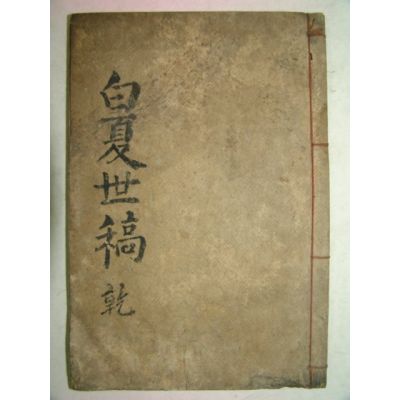 白夏世稿
乾